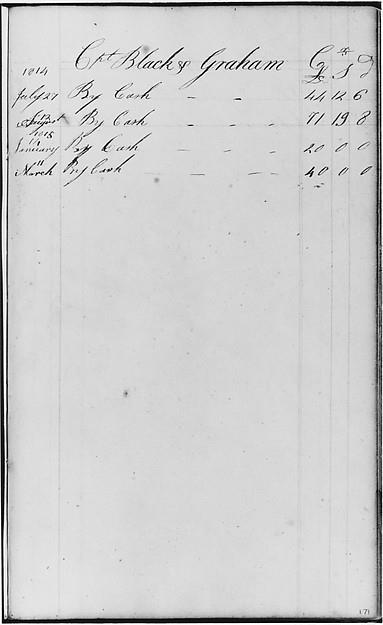 Black & Graham Cr
1814 £ S D
July 27 By Cash 44 12 6
August 12 By Cash 71 19 8
1815
January 11 By Cash 20 0 0
March 11 By Cash 40 0 0
171